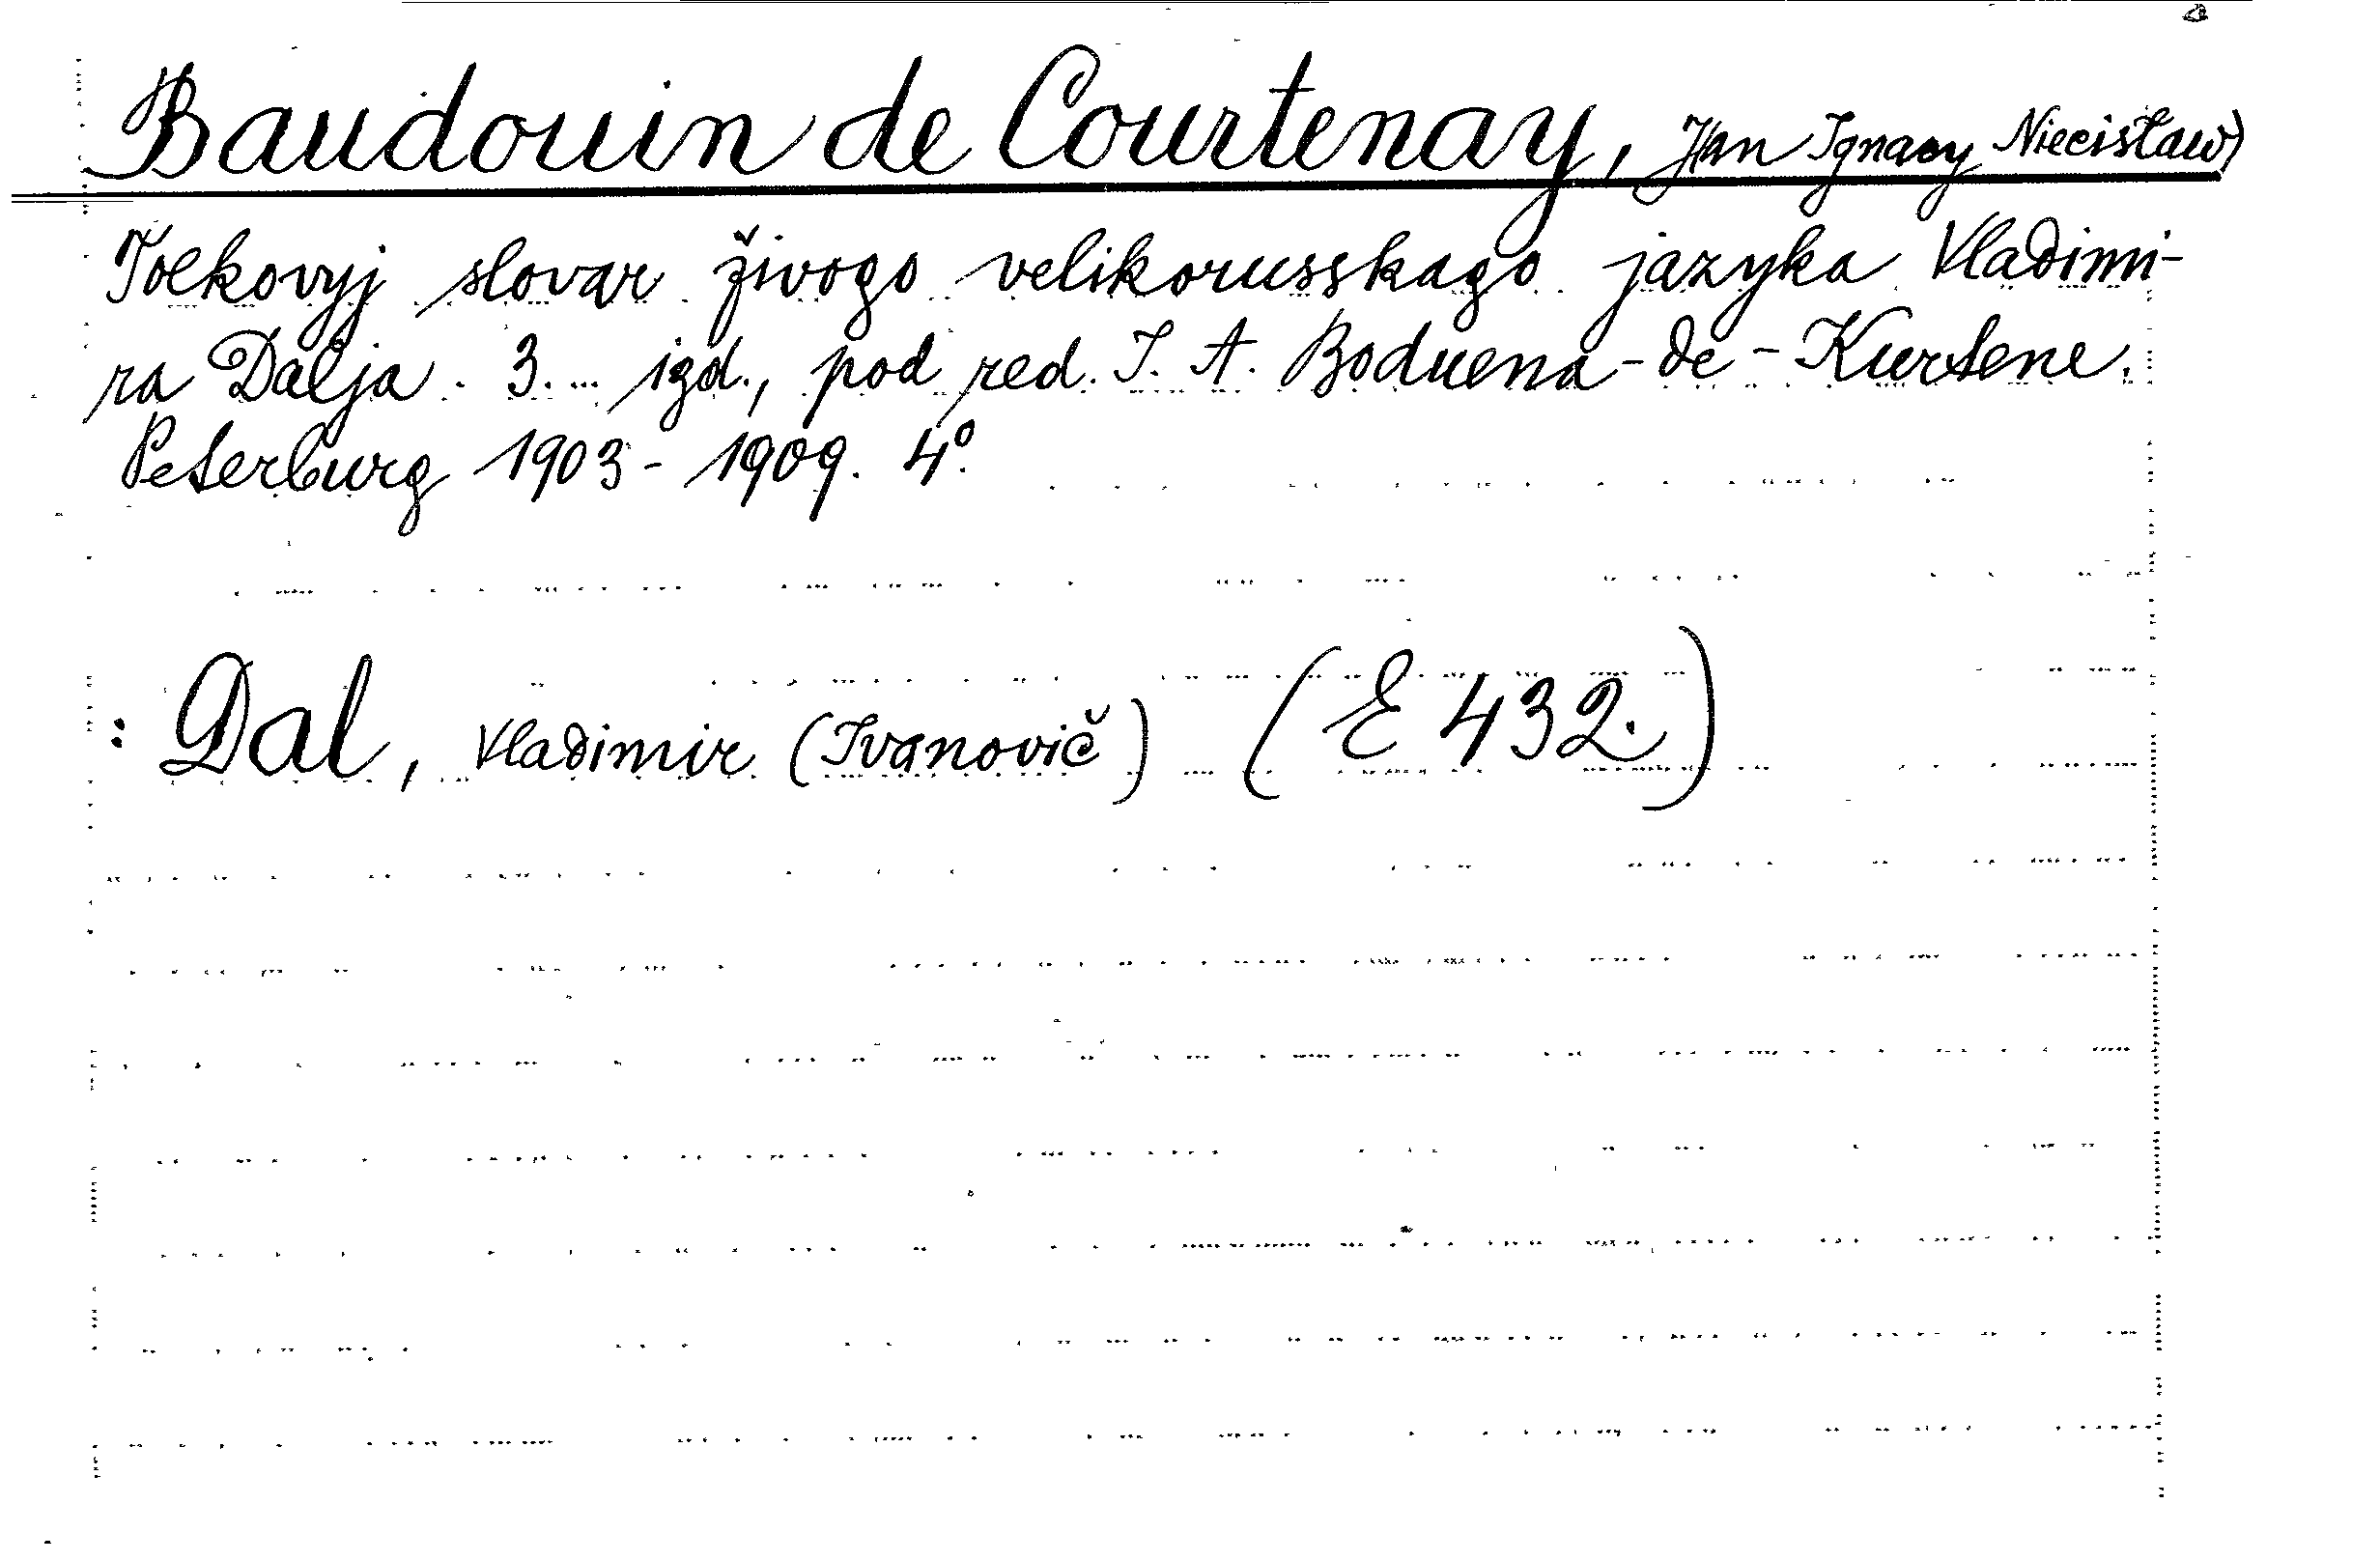 Baudouin de Courtenay, Jan Ignacy Niecisław)
Tolkovyj slovar živogo velikorusskago jazyka Vladimi-
ra Dalja. 3. ... izd., pod red. I. A. Boduena-de-Kurtene.
Peterburg 1903-1909. 4°.
: Dal, Vladimir (Ivanovič) (E 432.)